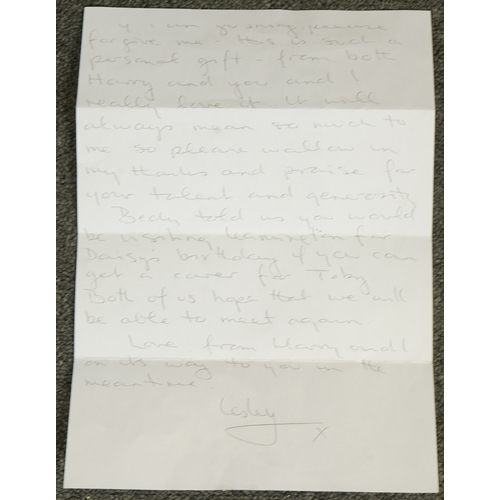 forgive me. This is such a
personal gift - from both
Harry and you and I
really love it. It will
always mean so much to
me so please wallow in
my thanks and praise for
your talent and generosity
Becky told us you would
be visiting Leamington for
Daisys birthday if you can
get a carer for Toby
Both of us hope that we will
be able to meet again.
Love from Harry and I
on its way to you in the
meantime.
Lesley
x